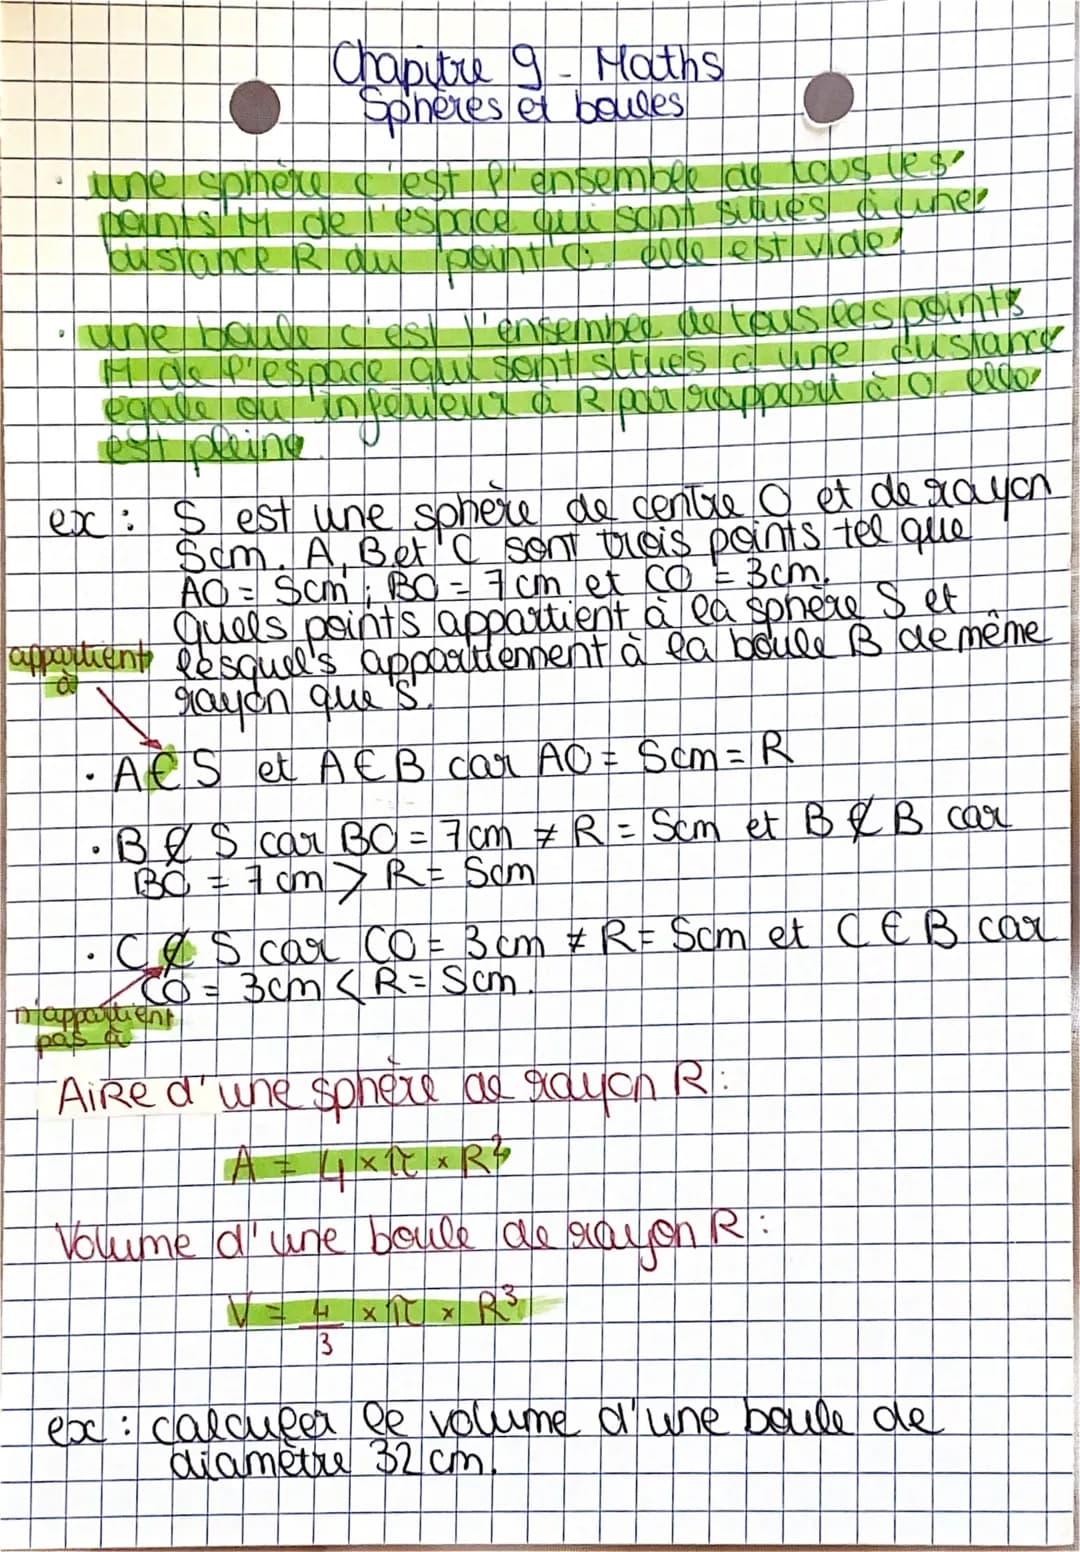 Chapitre 9 - Maths
Sphères et boules
· une sphère c'est l'ensemble de tous les
points M de l'espace qui sont situés à une
distance R du point O. elle est vide.
· une boule c'est l'ensemble de tous les points
M de l'espace qui sont situés à une distance
égale ou inférieur à R par rapport à O. elle
est pleine.
ex : S est une sphère de centre O et de rayon
5cm. A, B et C sont trois points tel que
AO = 5cm ; BO = 7cm et CO = 3cm.
Quels points appartient à la sphère S et
lesquels appartiennent à la boule B de même
rayon que S.
appartient
à
· A ∈ S et A ∈ B car AO = 5cm = R
· B ∉ S car BO = 7cm ≠ R = 5cm et B ∉ B car
BO = 7cm > R = 5cm
· C ∉ S car CO = 3cm ≠ R = 5cm et C ∈ B car
CO = 3cm < R = 5cm.
n'appartient
pas à
Aire d'une sphère de rayon R :
A = 4 × π × R²
Volume d'une boule de rayon R :
V = 4/3 × π × R³
ex : calculer le volume d'une boule de
diamètre 32cm.